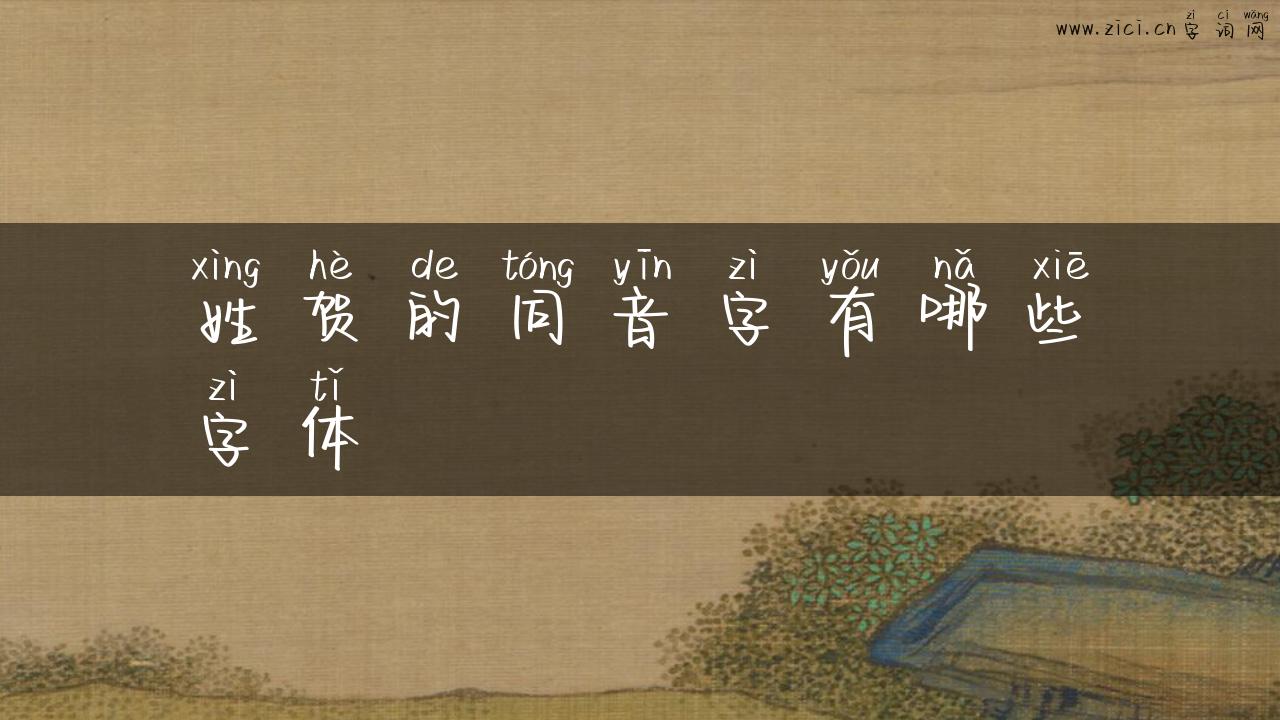 zì cí wǎng
www.zici.cn 字 词 网
xìng hè de tóng yīn zì yǒu nǎ xiē
姓 贺 的 同 音 字 有 哪 些
zì tǐ
字 体